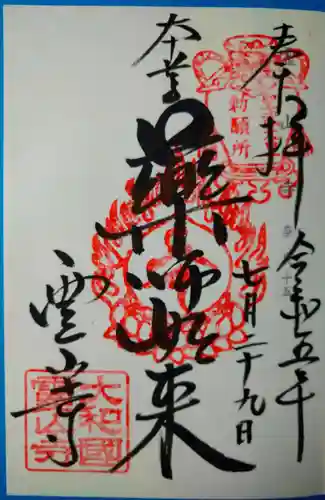 奉拝
令和五年
七月二十九日
本尊
藥師如来
霊山寺
祈願所
大和國
霊山寺